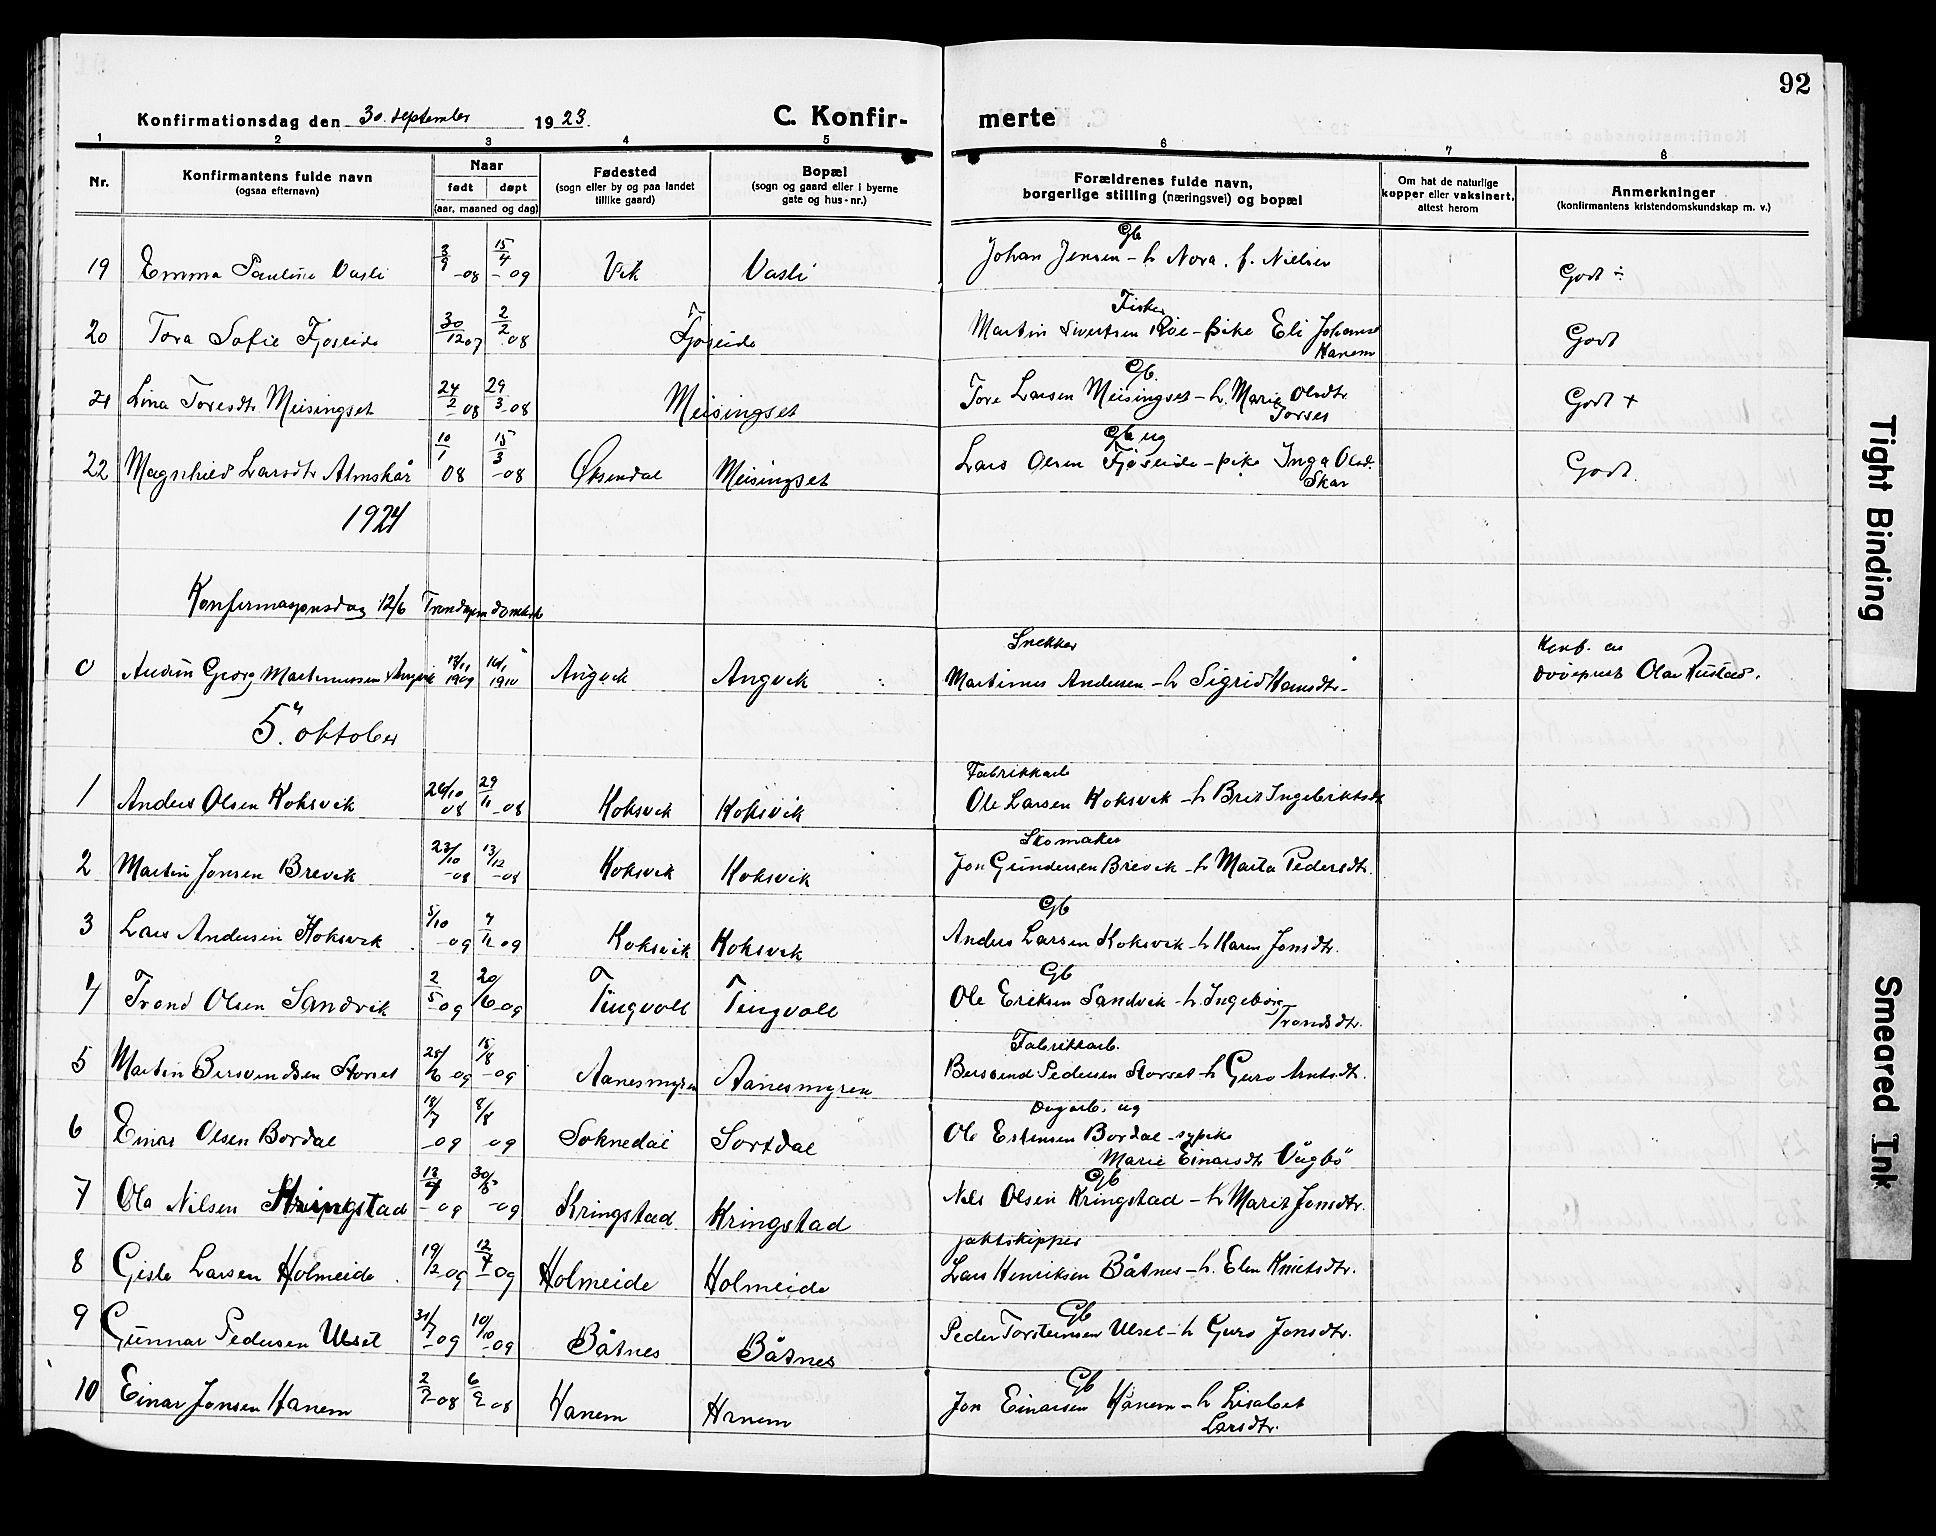 92
Konfirmationsdag den 30. september 1923. C. Konfir- merte
1 2 3 4 5 6 7 8
Nr. Konfirmantens fulde navn (ogsaa efternavn) Naar født døpt (aar, maaned og dag) Fødested (sogn eller by og paa landet tillike gaard) Bopæl (sogn og gaard eller i byerne gate og hus-nr.) Forældrenes fulde navn, borgerlige stilling (næringsvei) og bopæl Om hat de naturlige kopper eller vaksinert, attest herom Anmerkninger (konfirmantens kristendomskundskap m. v.)
Gb
19 Emma Pauline Vasli 3/9 -08 15/4 -09 Vik Vasli Johan Jensen - h Nora. f. Nielsen Godt ÷
Fisker
20 Tora Sofie Fjøseide 30/12 07 2/2 08 Fjøseide Martin Sivertsen Røe - pike Eli Johans Godt
Hanem
Gb.
21 Lina Toresdtr Meisingset 24/2 08 29/3 -08 Meisingset Tore Larsen Meisingset - h. Marie Olsdtr Godt +
Gb ug
22 Magnhild Larsdtr Almskår 10/1 08 15/3 -08 Øksendal Meisingset Lars Olsen Fjøseide - pike Inga Olsd. Godt.
Skar
1924
Konfirmasjonsdag 12/6
Snekker Konf. av
0 Audun Georg Martinussen Angvik 1909 16/1 1910 Angvik Angvik Martinus Andersen - h Sigrid Hansdtr-
5. oktober
Fabrikkarb
1 Anders Olsen Koksvik 26/10 08 29/11 -08 Koksvik Koksvik Ole Larsen Koksvik - h Brit Ingebriktsdt
Skomaker
2 Martin Jonsen Brevik 23/10 -08 13/12 -08 Koksvik Koksvik Jon Gundersen Brevik - h Marta Pedersdtr.
Gb
3 Lars Andersen Koksvik 5/10 -09 7/11 09 Koksvik Koksvik Anders Larsen Koksvik - h Karen Jonsdtr.
Gb
4 Trond Olsen Sandvik 2/5 -09 20/6 -09 Tingvoll Tingvoll Ole Eriksen Sandvik - h. Ingebor
Trondsdtr.
Fabrikkarb.
5 Martin Bersvendsen Storset 25/6 09 15/8 -09 Aanesmyren Aanesmyren Bersvend Pedersen Storset - h Guro Arntsdt.
Dagarb. ug
6 Einar Olsen Bordal 18/7 -09 8/8 09 Soknedal Sortdal Ole Estensen Bordal - sypike
Marie Einarsdtr Vågbø
Gb
7 Ola Nilsen Kringstad 13/7 -09 30/8 -09 Kringstad Kringstad Nils Olsen Kringstad - h Marit Jonsdtr.
jaktskipper
8 Gisle Larsen Holmeide 19/2 -09 12/4 -09 Holmeide Holmeide Lars Henriksen Båtnes - h. Elen Knutsdtr.
Gb
9 Gunnar Pedersen Ulset 31/7 -09 10/10 -09 Båtnes Båtnes Peder Torsteinsen Ulset - h Guro Jonsdtr.
Gb
10 Einar Jonsen Hanem 2/7 -08 6/9 08 Hanem Hanem Jon Einarsen Hånem - h Lisabet
Larsdtr.
Tight Binding
Smeared Ink